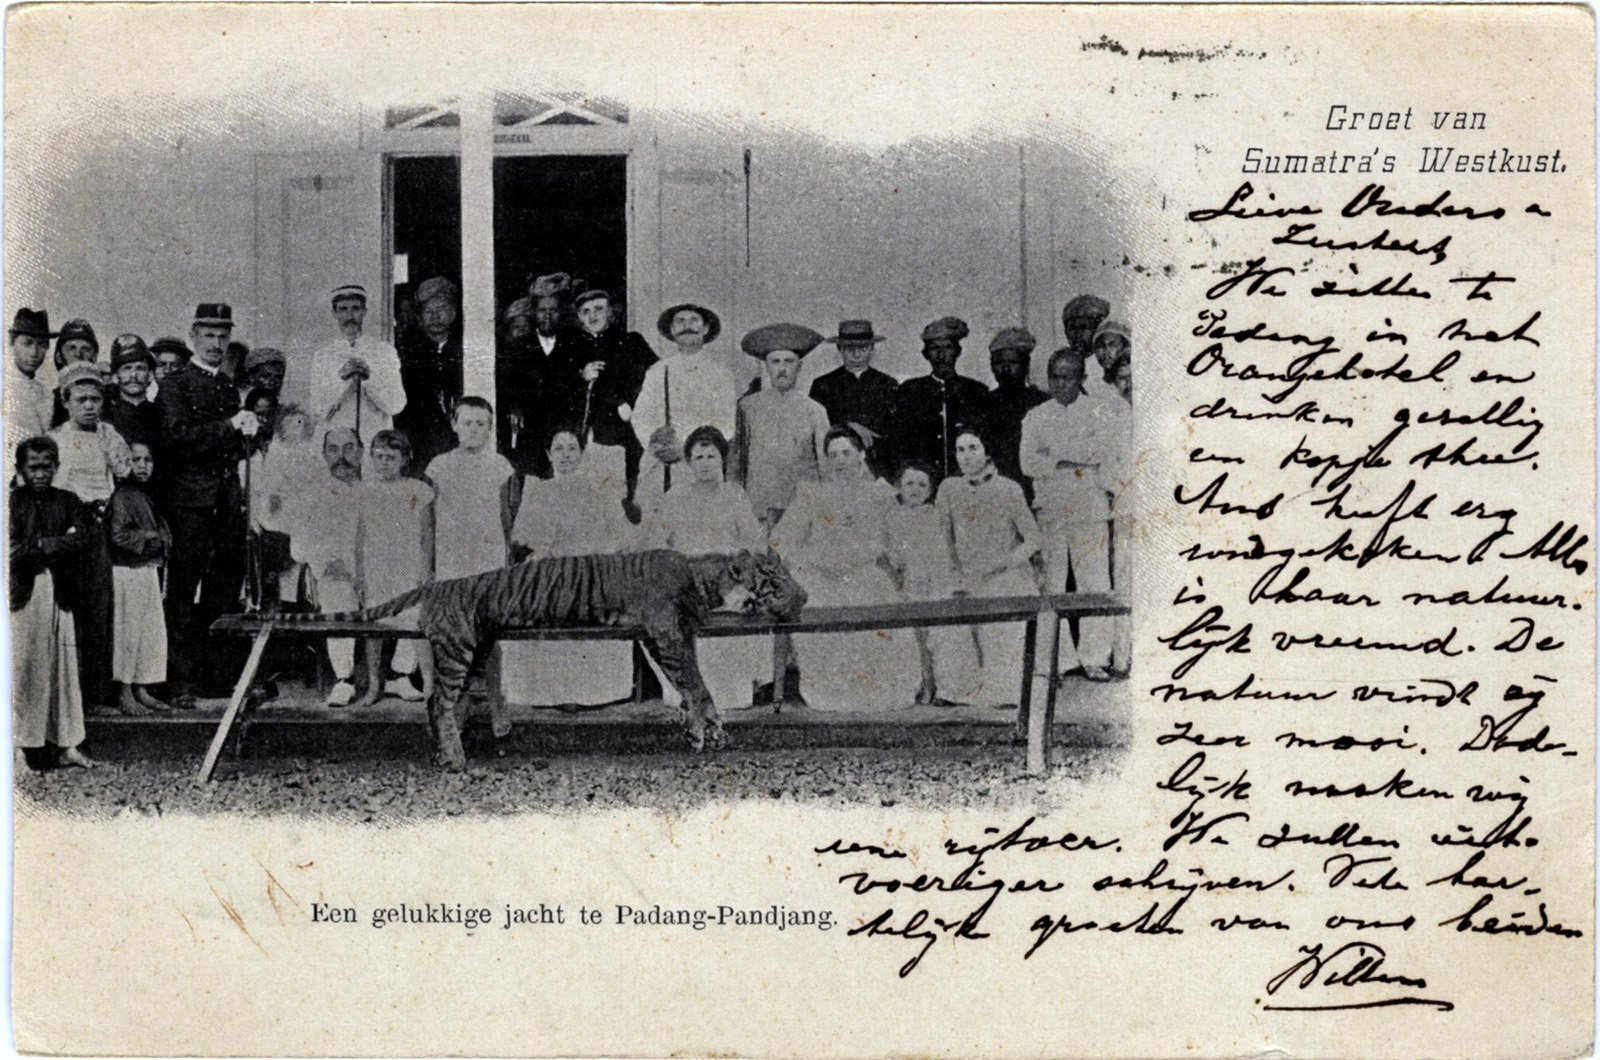 Groet van
Sumatra's Westkust.
Lieve Ouders
We zitten te
Padang in het
Oranjehotel en
drinken gezellig
een kopje thee.
heeft erg
rondgekeken. Alles
is haar natuur-
lijk vreemd. De
natuur vindt zij
zeer mooi. Dade-
lijk maken wij
een rijtoer. We zullen uit-
voeriger schrijven. Vele har-
telijk groeten van ons beiden
Willem
Een gelukkige jacht te Padang-Pandjang.